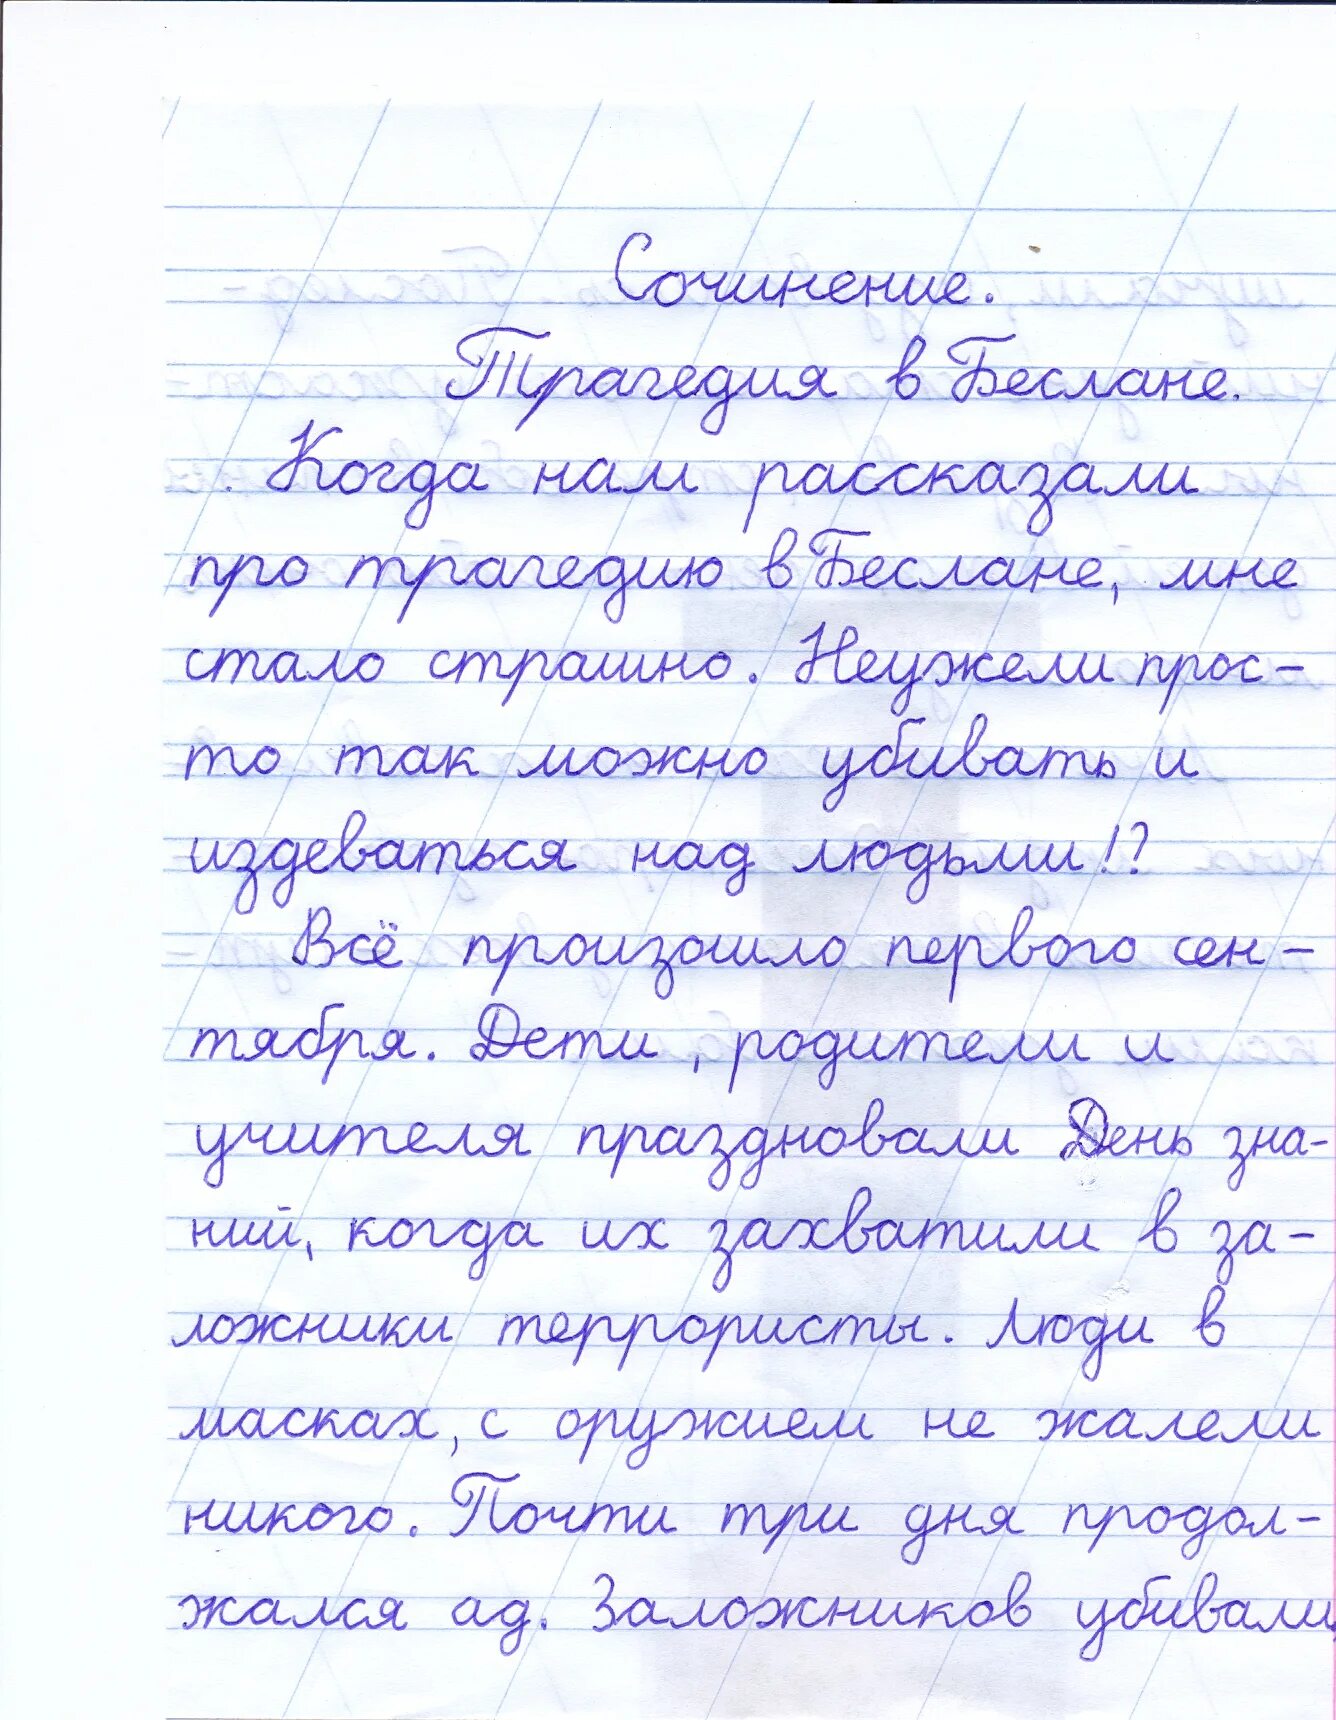 Сочинение.
Трагедия в Беслане.
Когда нам рассказали
про трагедию в Беслане, мне
стало страшно. Неужели прос-
то так можно убивать и
издеваться над людьми!?
Всё произошло первого сен-
тября. Дети, родители и
учителя праздновали День зна-
ний, когда их захватили в за-
ложники террористы. Люди в
масках, с оружием не жалели
никого. Почти три дня продол-
жался ад. Заложников убивали,